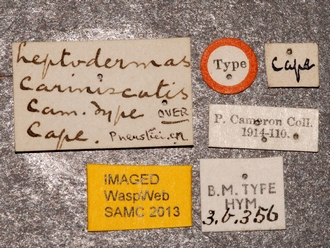 Leptodermas
Cariniscutis
Cam. type OVER
Cape.
Type
Cape
P. Cameron Coll.
1914-110.
IMAGED
WaspWeb
SAMC 2013
B.M. TYPE
HYM.
3.b.356